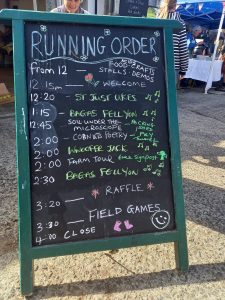 RUNNING ORDER
from 12 — FOOD CRAFTS
STALLS DEMOS
12.15pm — WELCOME
12.20 ST JUST UKES
1.15 BAGAS FELLYON
12.45 SOIL UNDER THE MICROSCOPE
2.00 CORNISH POETRY
2.00 WHOOFER JACK
2.00 FARM TOUR
2.30 BAGAS FELLYON
3.20 — RAFFLE
3.30 — FIELD GAMES
4.00 CLOSE